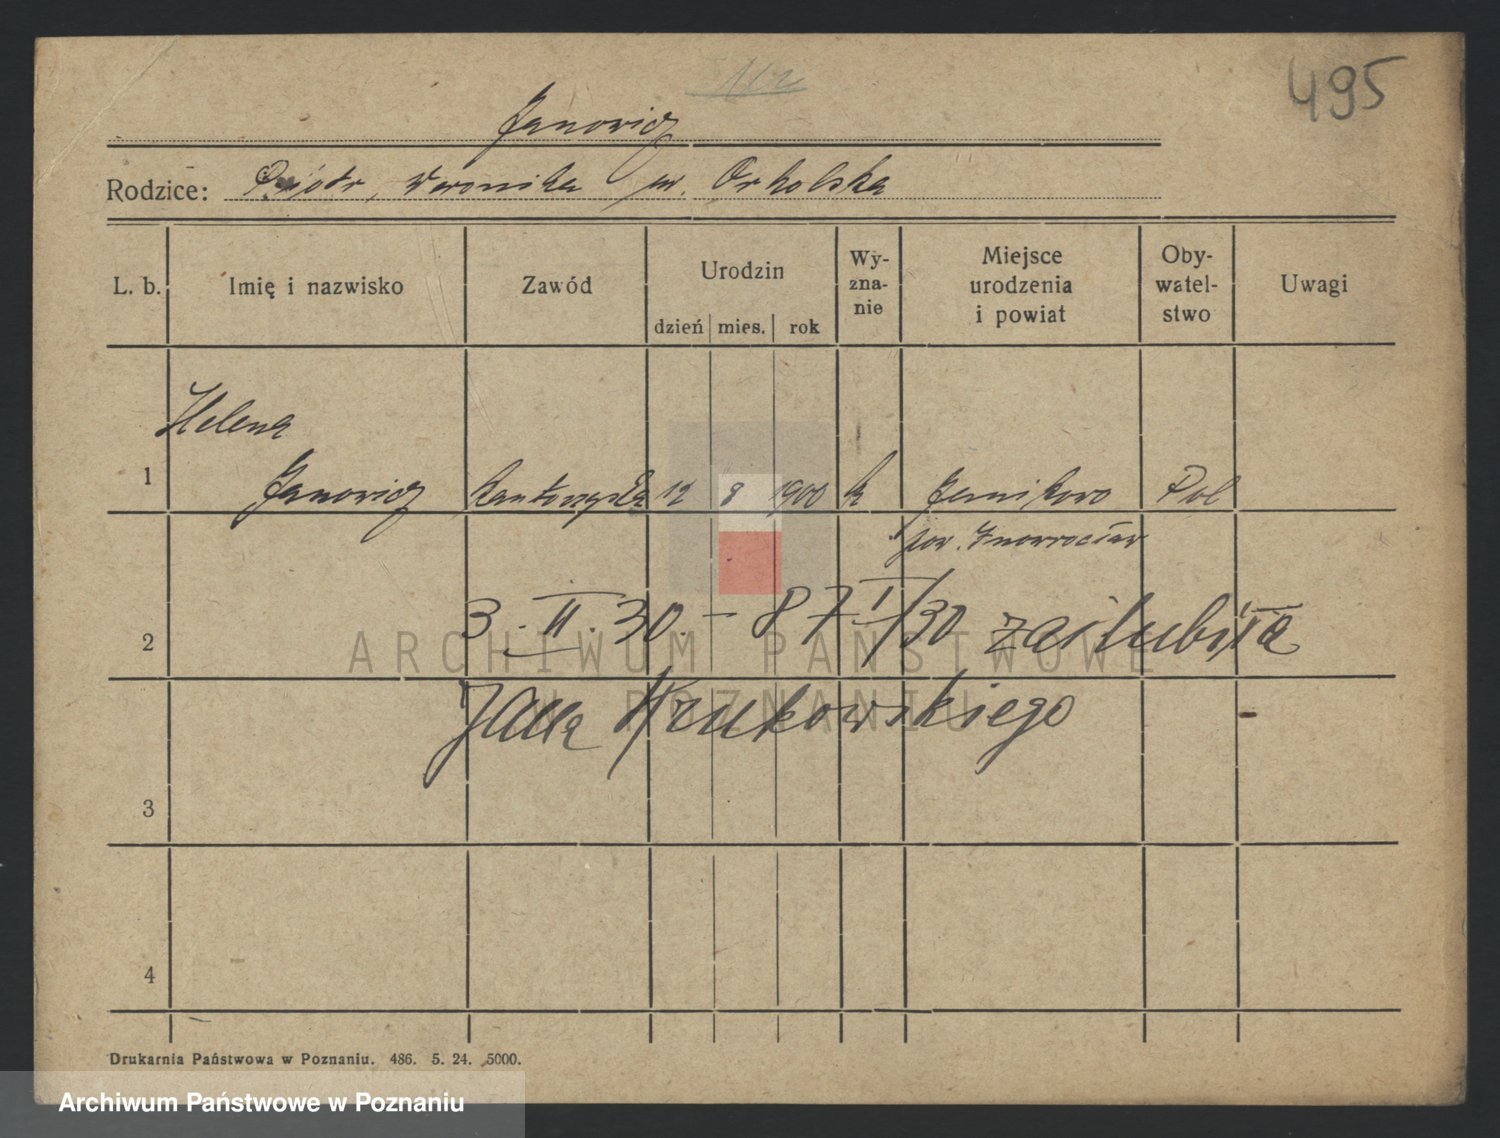 495
Janowicz
Rodzice: Piotr, Weronika ur. Orholska
L. b. Imię i nazwisko Zawód Urodzin dzień mies. rok Wy-zna-nie Miejsce urodzenia i powiat Oby-watel-stwo Uwagi
Helena
1 Janowicz kantorzystka 12 8 1900 k Jernikowo Pol
pow. Inowrocław
2 3. II. 30. – 87 I/30 zaślubiła
Jana Krukowskiego
3
4
Drukarnia Państwowa w Poznaniu. 486. 5. 24. 5000.
ARCHIWUM PAŃSTWOWE
W POZNANIU
Archiwum Państwowe w Poznaniu